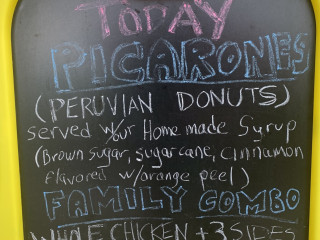 TODAY
PICARONES
(PERUVIAN DONUTS)
served w/our Home made Syrup
(Brown Sugar, sugar cane, Cinnamon
flavored w/orange peel)
FAMILY COMBO
WHOLE CHICKEN + 3 SIDES